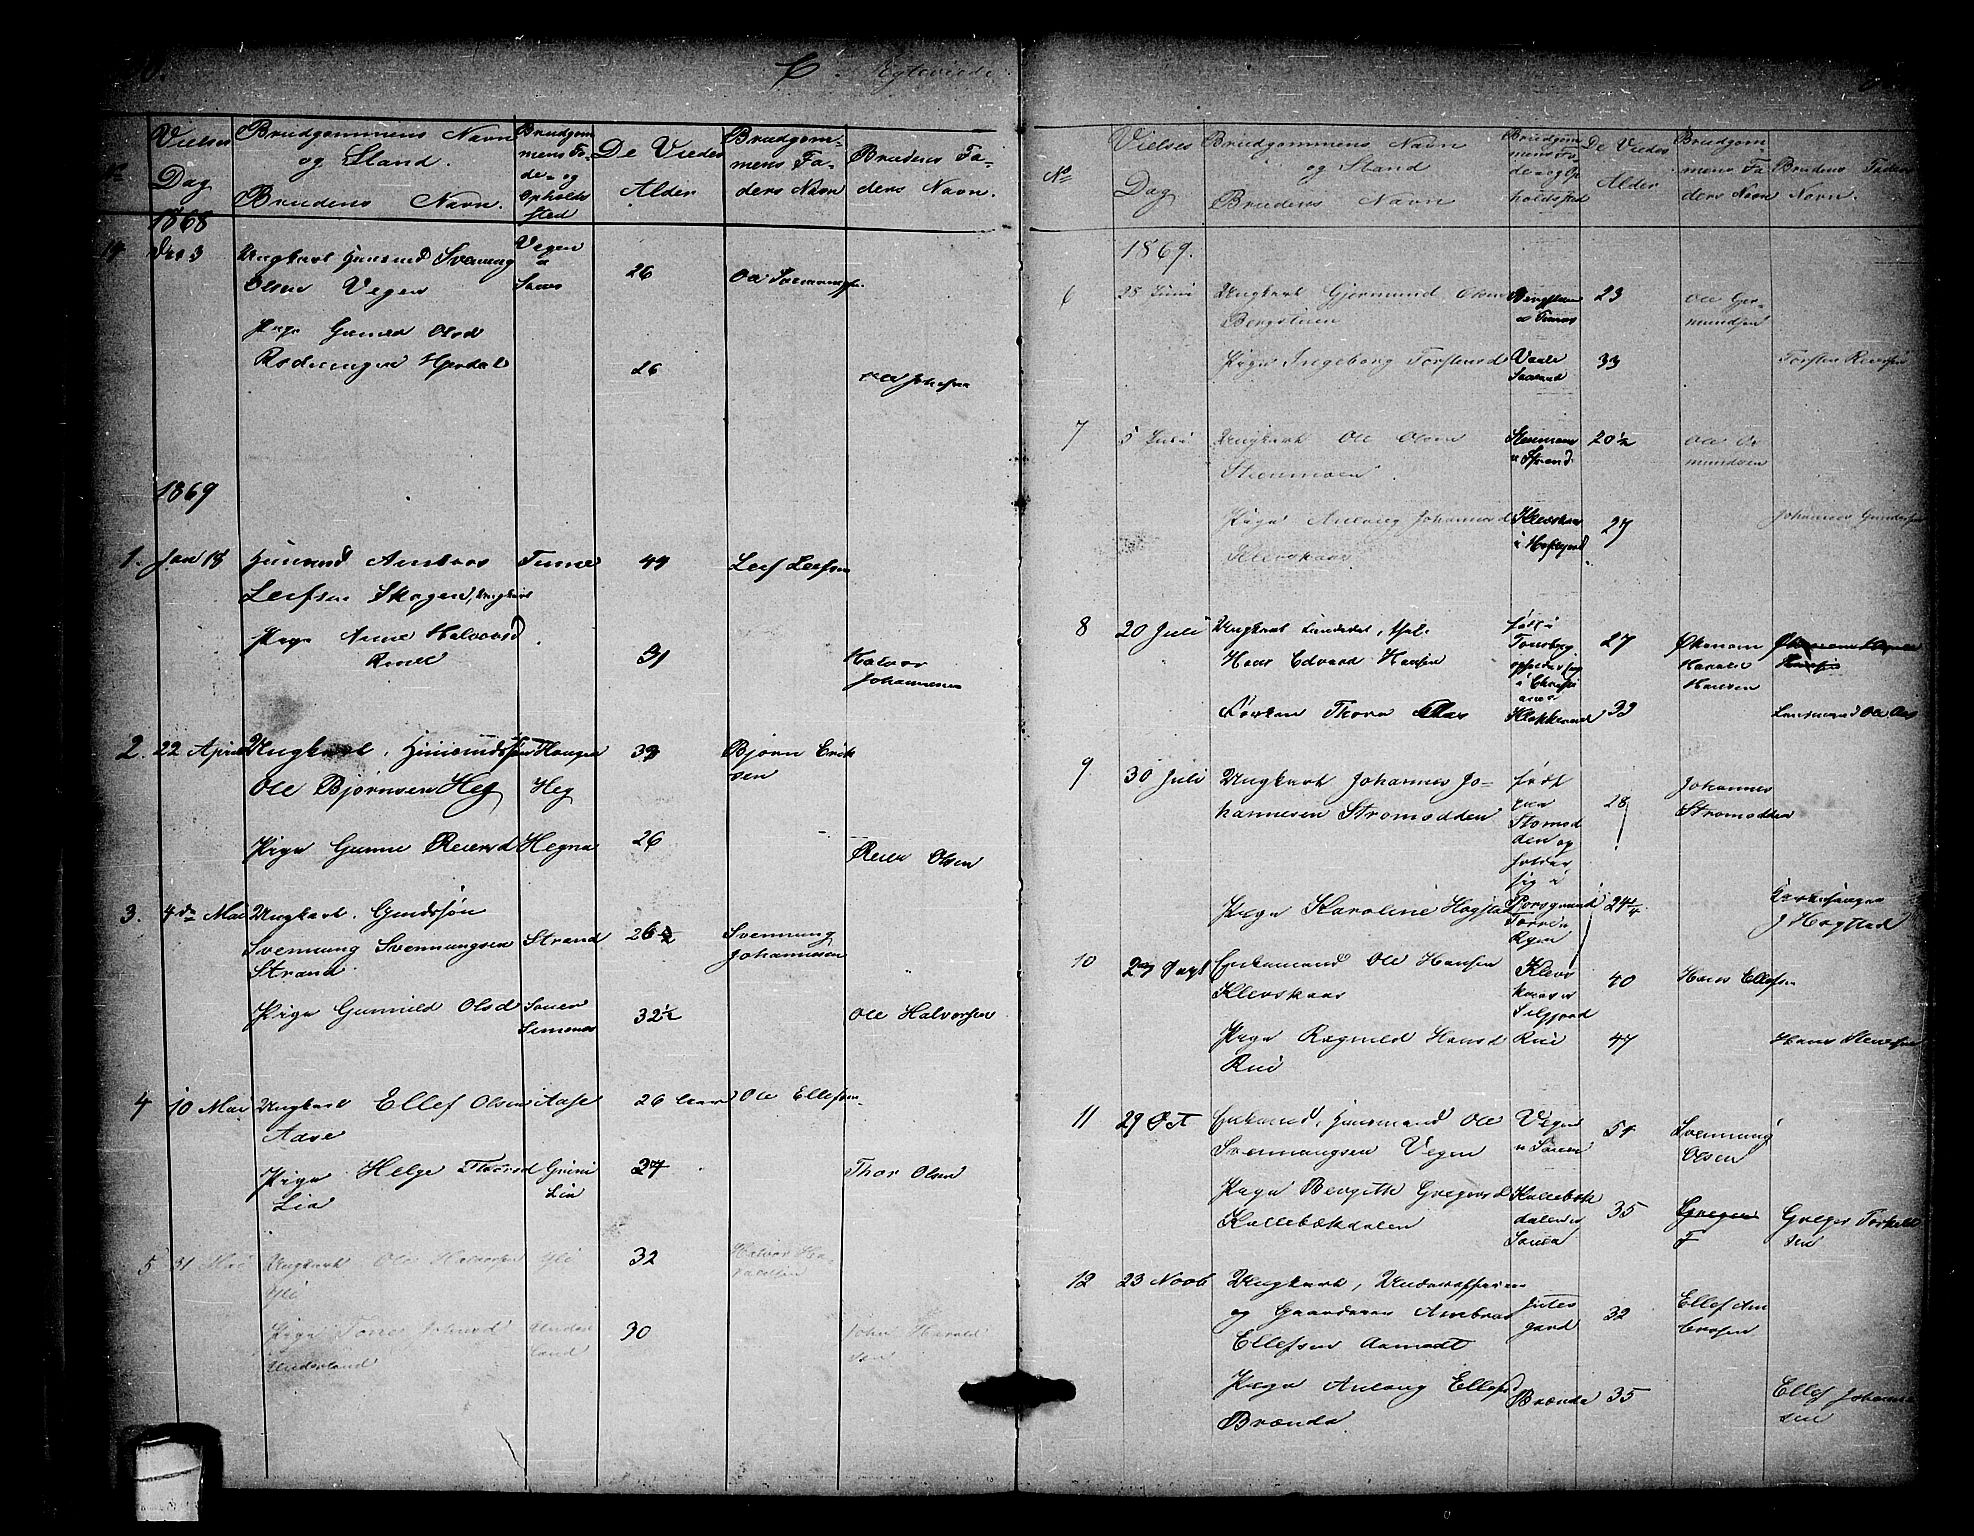 C. Egteviede
No
Vielses
Dag
Brudgommens Navn
og Stand.
Brudens Navn.
Brudgom
mens Fø
de- og
Opholds
sted
De Viedes
Alder
Brudgom-
mens Fa-
ders Navn
Brudens Fa-
ders Navn.
1868
14 Dec 3 Ungkarl Huusmd Svenung
Olsen Vegen
Vegen
Saue
26
Ole Svennungsen
Pige Gunild Olsd
26
Ole Johnsen
1869
1. Jan 18 Huusmd Ambros
Leifsen Skogen, Ungkarl
Tinne
44
Leif Leifsen
Pige Anne Halvorsd
31
Halvor
Johannesen
2. 22 April Ungkarl, Huusmdssøn
Ole Bjørnsen Heg
Haugen
Heg
39
Bjørn Erik
sen
Pige Gunne Reiersd Hegna
26
Reier Olsen
3. 4de Mai Ungkarl. Grdssøn
Svennung Svennungsen
Strand
Strand
26½
Svennung
Johannesen
Pige Gunnild Olsd
Sauer
32½
Ole Halvorsen
4 10 Mai Ungkarl Ellef Olsen
Aase
Aase
26 Aar
Ole Ellefsen
Pige Helge Thorsd
Lia
Grini
Lia
37
Thor Olsen
5 31 Mai Ungkarl Ole Halvorsen
Yli
Yli
32
Pige Tone Johnsd
Underland
Under
land
30
John Harald
sen
No
Vielses
Dag
Brudgommens Navn
og Stand
Brudens Navn
Brudgom
mens Fø-
de- og Op
holdssted
De Viedes
Alder
Brudgom-
mens Fa
ders Navn
Brudens Faders
Navn.
1869.
6 28 Juni Ungkarl Gjermund Olsen
Bergstuen
Bergstuen
23
Ole Gjer-
mundsen
Pige Ingeborg Torstensd
Vaale
Sauland
33
Torsten Reiersen
7 5 Juli Ungkarl Ole Olsen
Steenmoen
20½
Ole A-
mundsen
Pige Anlaug Johannesd
Klevskaas
Klevskaas
27
Johannes Gundersen
8 20 Juli Ungkarl
Hans Edvard Hansen
født i
Tønsberg
opholder sig
i Christi
ania
27
Harald
Hansen
Frøken Thora Aas
Klokkerud
33
Lensmand Ole Aas
9 30 Juli Ungkarl Johannes Jo-
hannesen Strømodden
født
paa
Strømod
den og
holder
sig i
28
Johannes
Strømodden
Pige Karoline Hogstad
Porsgrund
24¼
Kirkesanger
J Hogstad
10 27 Aug Enkemand Ole Hansen
Klevskaas
Klevs
kaas i
Silgjord
40
Hans Ellefsen
Pige Ragnild Hansd
Rui
Rui
47
Hans Stenersen
11 29 Oct Enkemd, Huusmand Ole
Svennungsen Vegen
Vegen
i Sauer
54
Svennung
Olsen
Pige Bergith Gregersd
Kallebækdalen
Kallebæk
dalen i
Sauer
35
Greger
T
Greger Torkild
sen
12 23 Novb Ungkarl, Underofficeer
og Gaardeier Ambros
Ellefsen Aamodt
Jules
gard
32
Ellef Am
brosen
Pige Anlaug Ellefsd
Brænda
Brænda
35
Ellef Johannes
sen